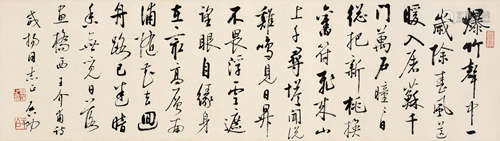 爆竹聲中一
歲除春風送
暖入屠蘇千
門萬户曈〻日
總把新桃換
舊符飛來山
上千尋塔聞說
雞鳴見日昇
不畏浮雲遮
望眼自緣身
在最高層南
浦隨花去迴
舟路已迷暗
香無覓處日落
畫橋西王介甫詩
揚同志正啟功